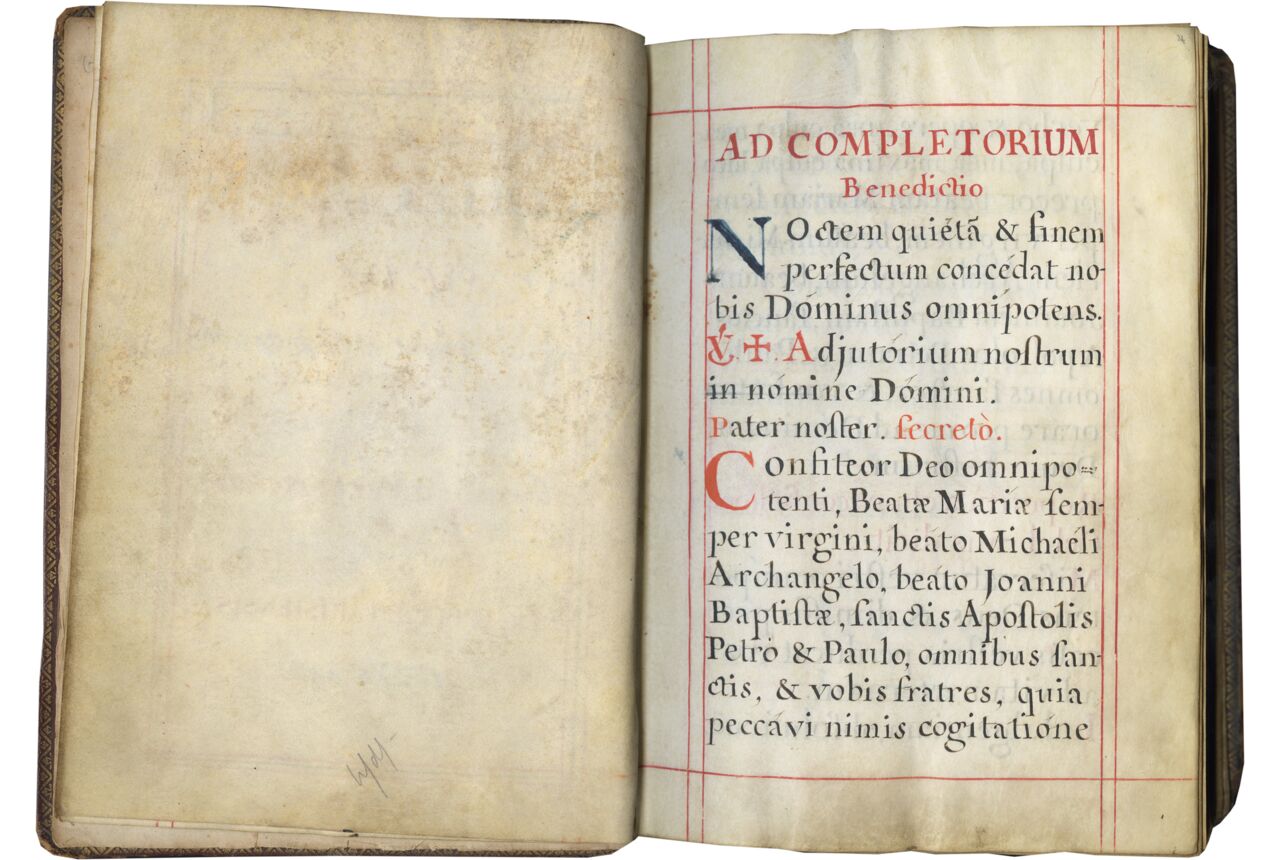 AD COMPLETORIUM
Benedictio
NOctem quiétã & finem
perfectum concédat no-
bis Dóminus omnípotens.
℣. ✠. Adjutórium noſtrum
in nómine Dómini.
Pater noſter. ſecretò.
Confiteor Deo omnipo=
tenti, Beatæ Maríæ ſem-
per virgini, beáto Michaéli
Archangelo, beáto Joanni
Baptiſtæ, ſanctis Apoſtolis
Petro & Paulo, omnibus ſan-
ctis, & vobis fratres, quia
peccávi nimis cogitatióne